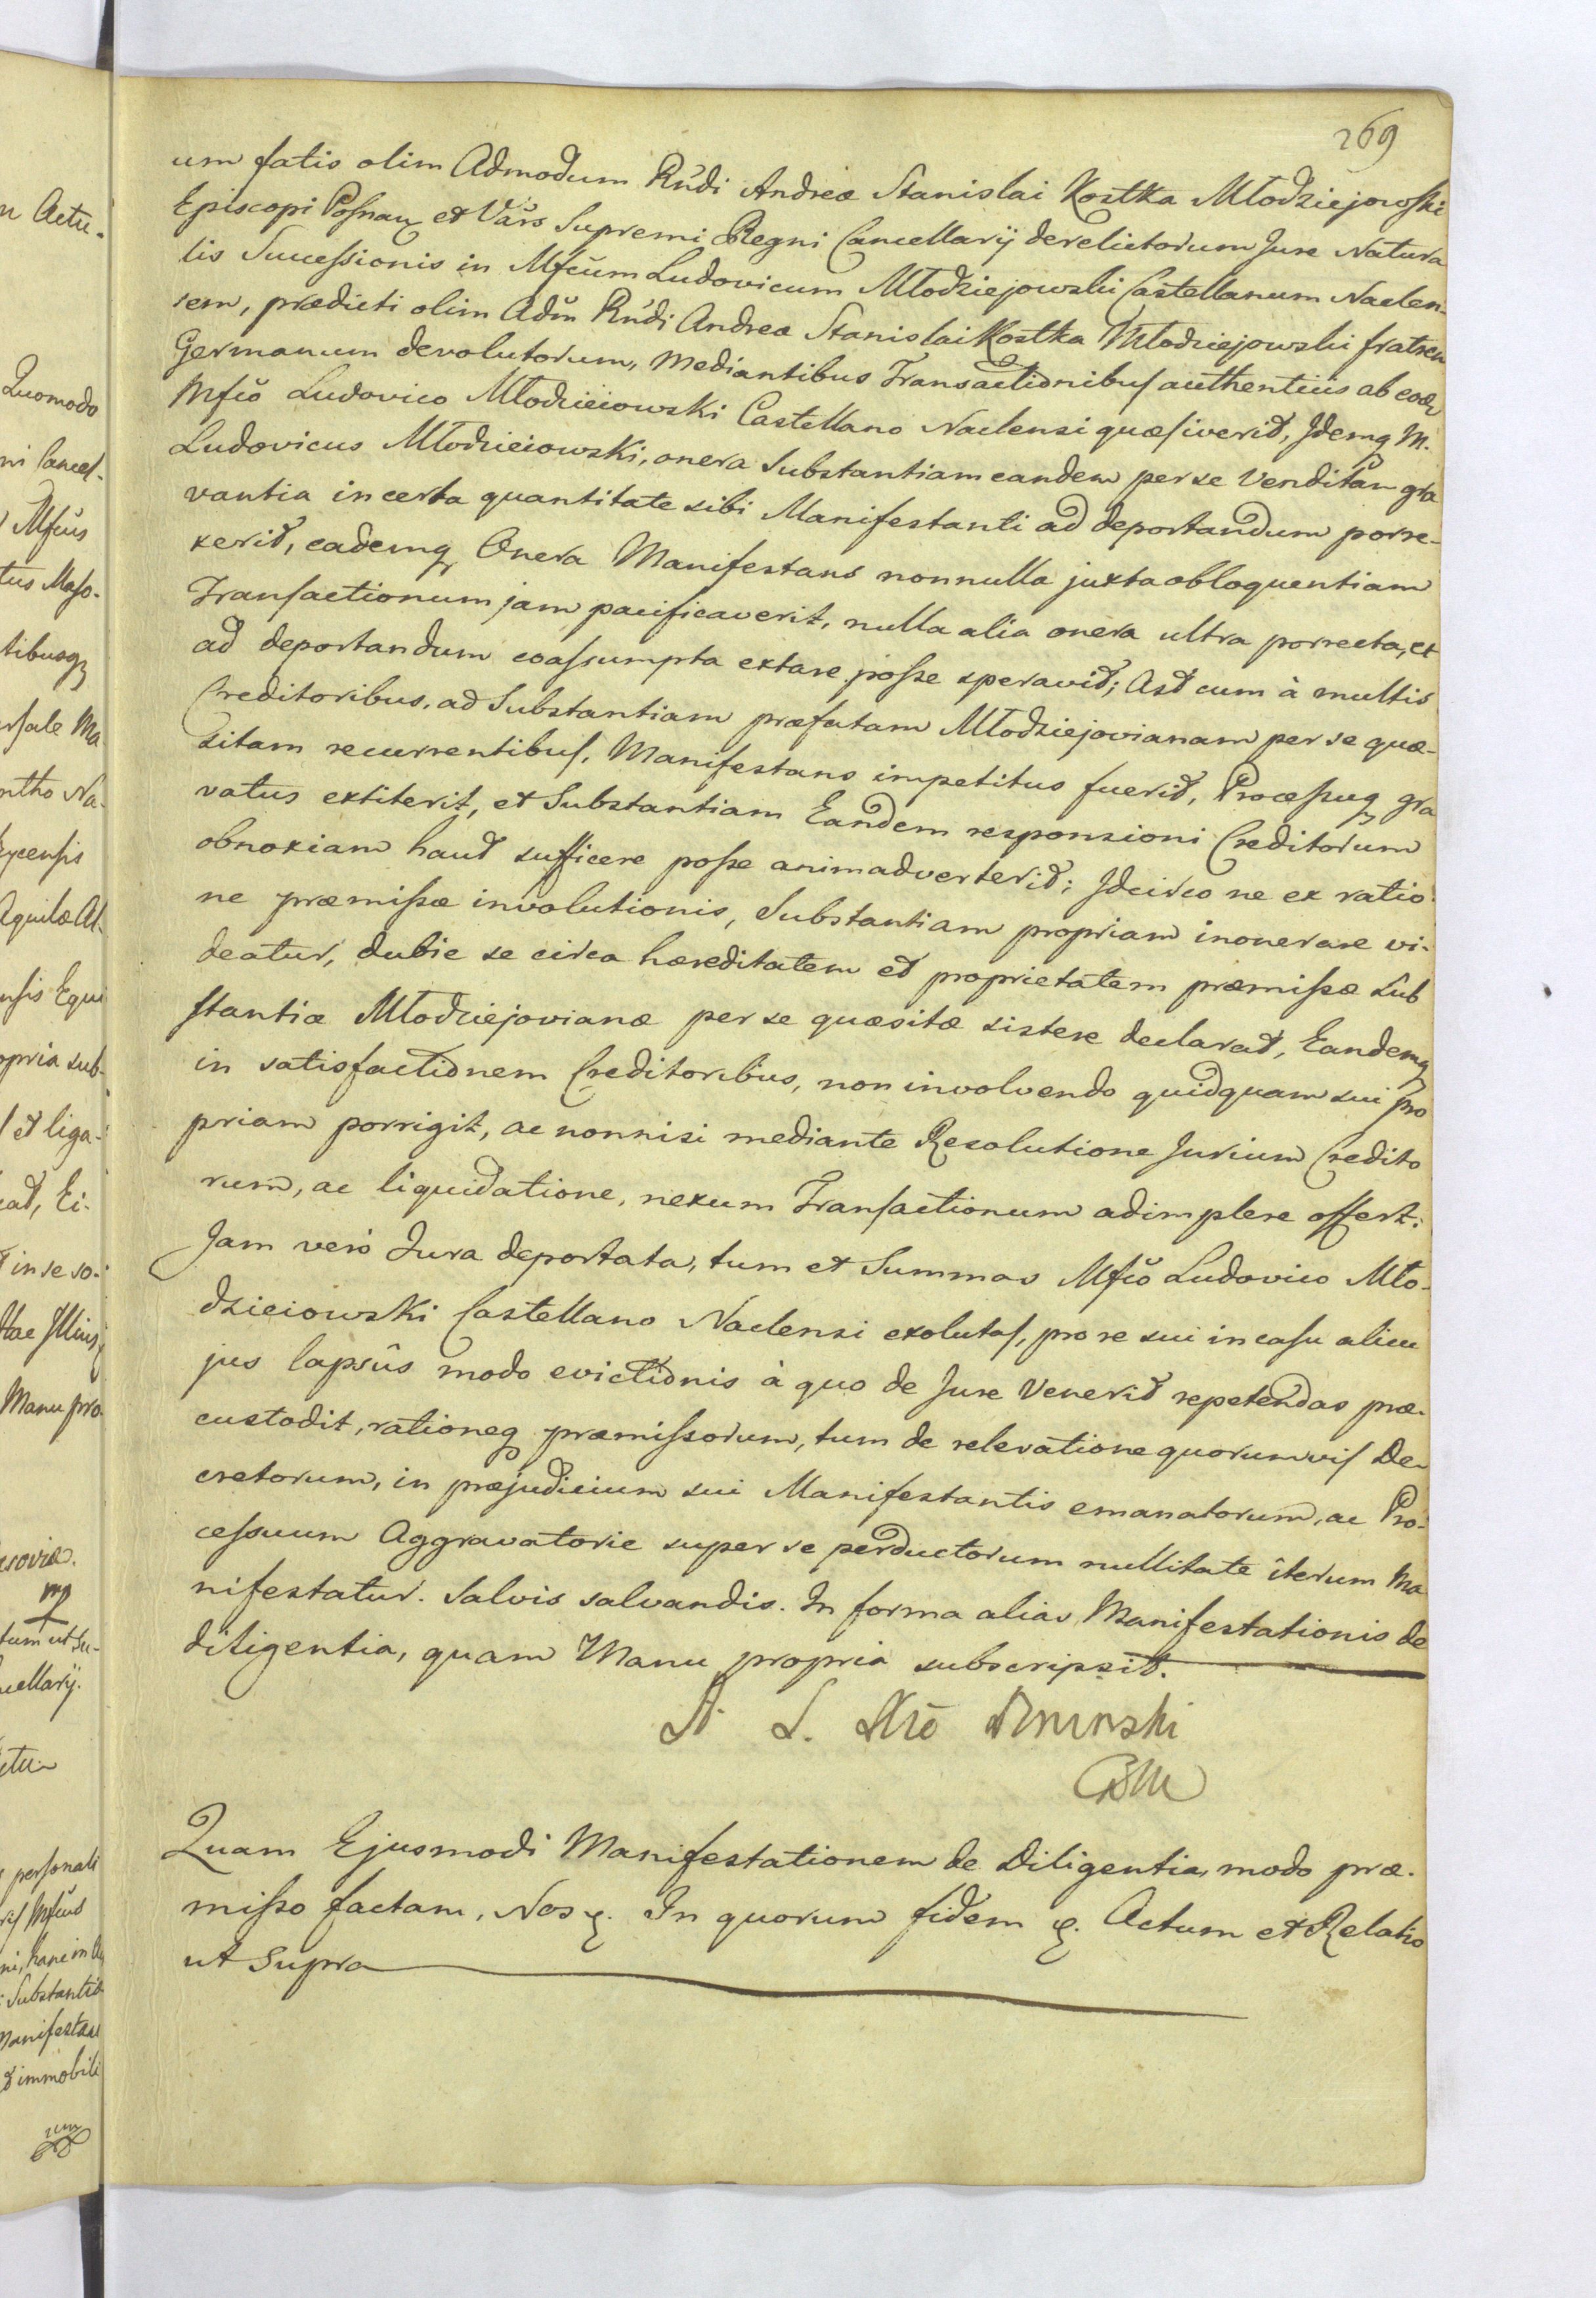 269
um fatis olim Admodum Rńdi Andreæ Stanislai Kostka Młodziejowski
Episcopi Posnan et Vars Supremi Regni Cancellarij derelictorum Jure Natura
lis Successionis in Mfcum Ludovicum Młodziejowski Castellanum Naclen-
sem, prædicti olim Adm Rńdi Andreæ Stanislai Kostka Młodziejowski fratrem
Germanum devolutorum, Mediantibus Transactionibus authenticis ab eodem
Mfco Ludovico Młodzieiowski Castellano Naclensi quæsiverit, Idemq M.
Ludovicus Młodzieiowski, onera Substantiam eandem per se Venditam gra
vantia in certa quantitate sibi Manifestanti ad deportandum porre-
xerit, eademq Onera Manifestans nonnulla juxta obloquentiam
Transactionum jam pacificaverit, nulla alia onera ultra porrecta, et
ad deportandum coassumpta extare posse speravit; Ast cum à multis
Creditoribus, ad Substantiam præfatam Młodziejovianam per se quæ-
sitam recurrentibus, Manifestans impetitus fuerit, Processuq gra
vatus extiterit, et Substantiam Eandem responsioni Creditorum
obnoxiam haud sufficere posse animadverterit; Idcirco ne ex ratio
ne præmissæ involutionis, Substantiam propriam inonerare vi-
deatur, dubie se circa hæreditatem et proprietatem præmissæ Sub
stantiæ Młodziejovianæ per se quæsitæ sistere declarat, Eandemq
in satisfactionem Creditoribus, non involvendo quidquam sui pro
priam porrigit, ac nonnisi mediante Resolutione Jurium Credito
rum, ac liquidatione, nexum Transactionum adimplere offert.
Jam verò Jura deportata, tum et Summas Mfco Ludovico Mło-
dzieiowski Castellano Naclensi exolutas, pro re sui in casu alicu
jus lapsûs modo evictionis à quo de Jure Venerit repetendas præ-
custodit, rationeq præmissorum, tum de relevatione quorumvis De
cretorum, in præjudicium sui Manifestantis emanatorum, ac Pro-
cessuum Aggravatorie super se perductorum nullitate iterum Ma
nifestatur. Salvis salvandis. In forma alias Manifestationis de
diligentia, quam Manu propria subscripsit.
Quam Ejusmodi Manifestationem de Diligentia, modo præ-
misso factam, Nos &. In quorum fidem &. Actum et Relatio
ut Supra